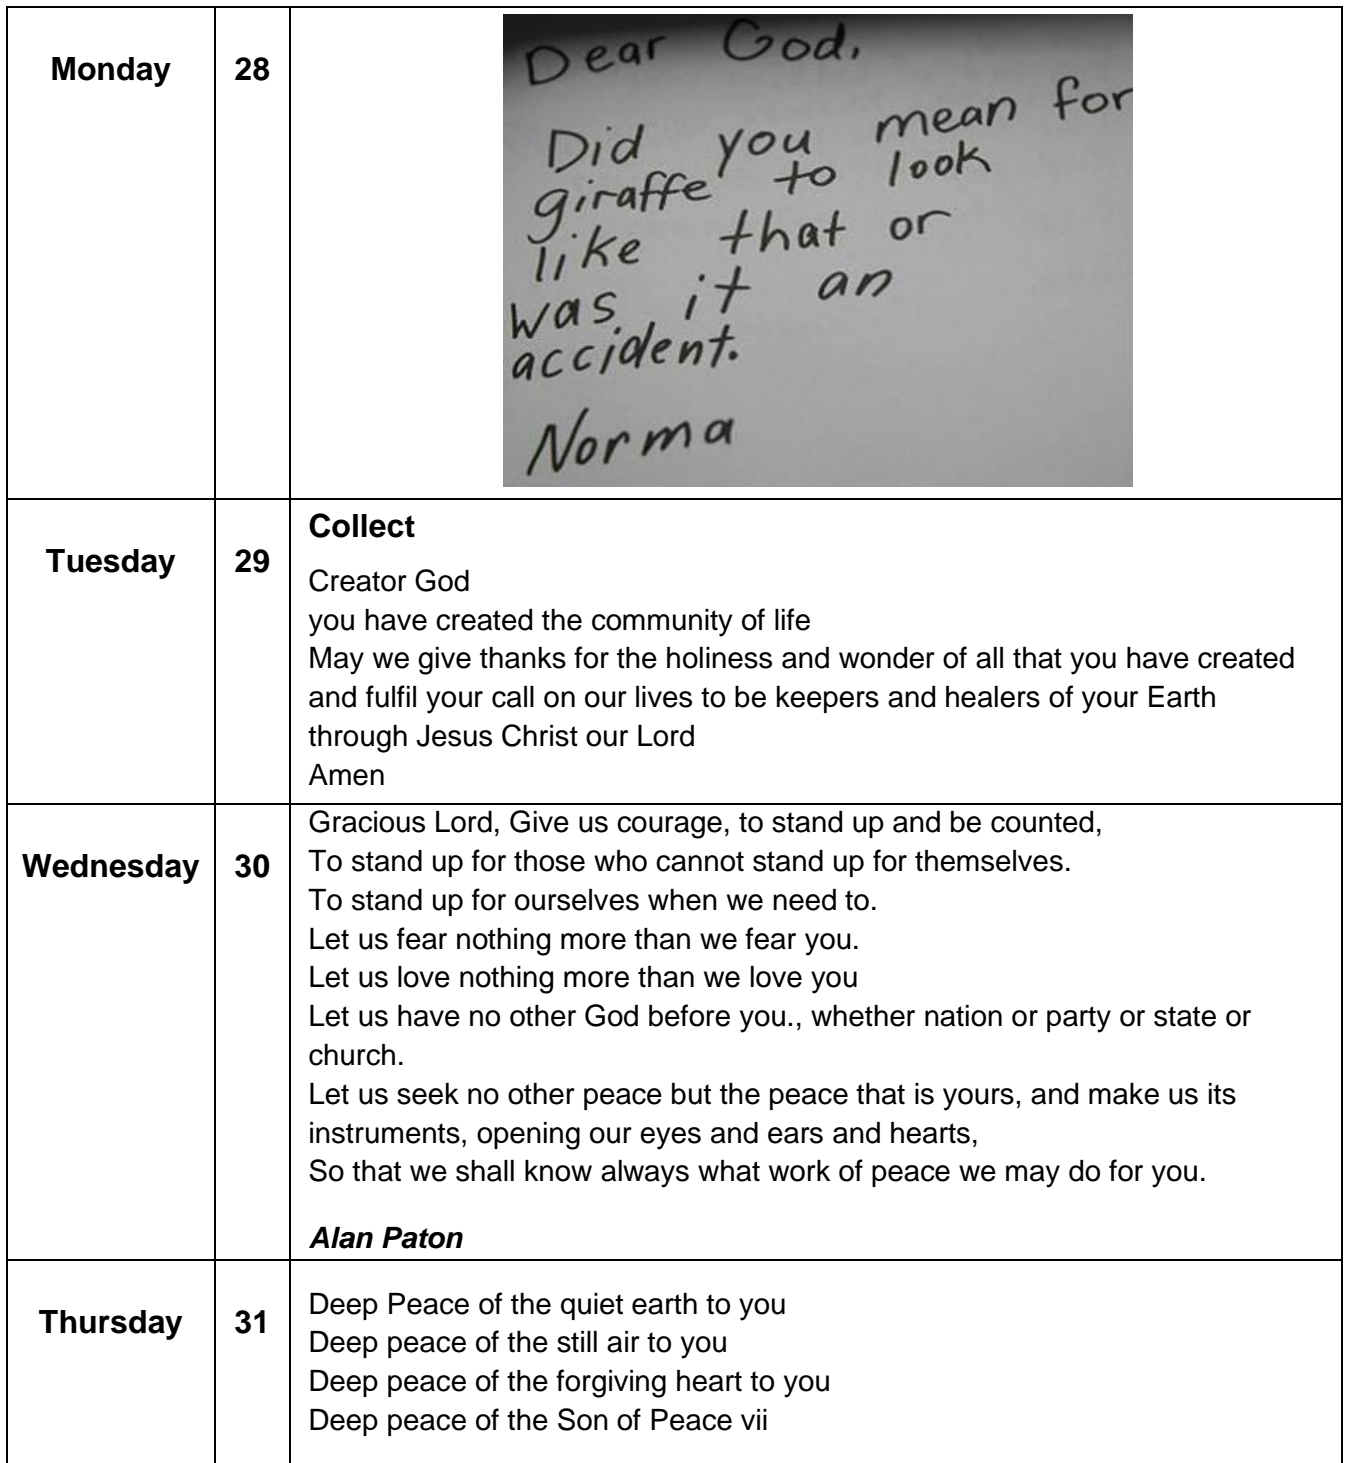 Monday
28
Dear God,
Did you mean for
giraffe to look
like that or
was it an
accident.
Norma
Tuesday
29
Collect
Creator God
you have created the community of life
May we give thanks for the holiness and wonder of all that you have created
and fulfil your call on our lives to be keepers and healers of your Earth
through Jesus Christ our Lord
Amen
Wednesday
30
Gracious Lord, Give us courage, to stand up and be counted,
To stand up for those who cannot stand up for themselves.
To stand up for ourselves when we need to.
Let us fear nothing more than we fear you.
Let us love nothing more than we love you
Let us have no other God before you., whether nation or party or state or
church.
Let us seek no other peace but the peace that is yours, and make us its
instruments, opening our eyes and ears and hearts,
So that we shall know always what work of peace we may do for you.
Alan Paton
Thursday
31
Deep Peace of the quiet earth to you
Deep peace of the still air to you
Deep peace of the forgiving heart to you
Deep peace of the Son of Peace vii